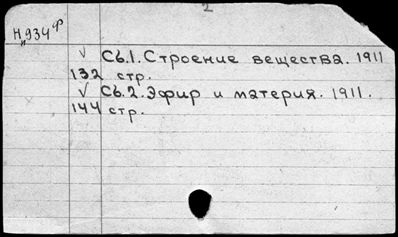 2
Н934ф
√ Сб.1. Строение вещества. 1911
132 стр.
√ Сб.2. Эфир и материя. 1911.
144 стр.